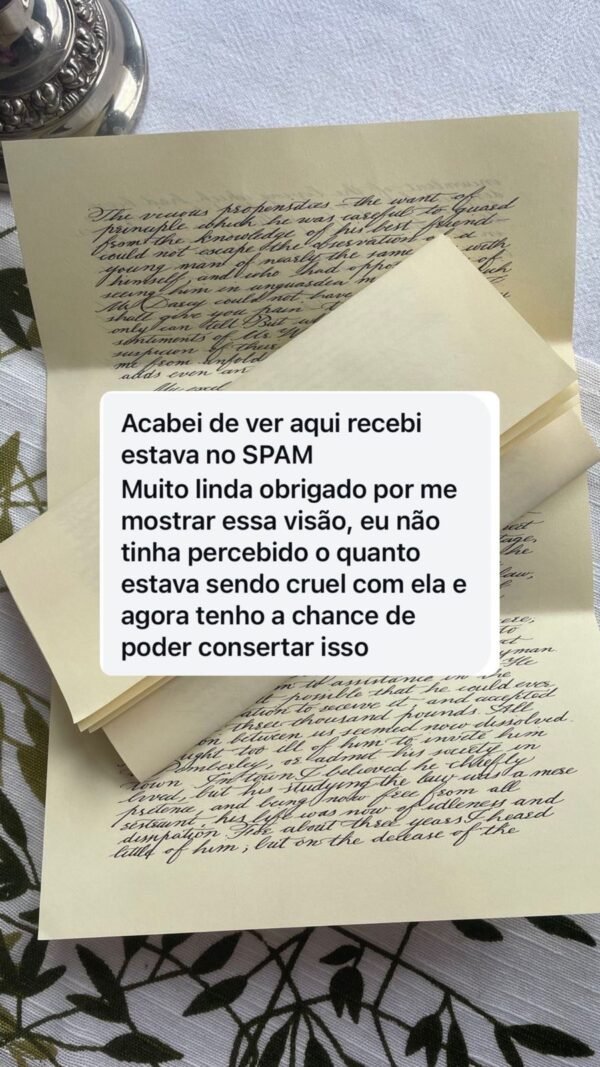 The vicious propensities – the want of
principle which he was careful to guard
from the knowledge of his best friend
could not escape the observation of a
young man of nearly the same with
himself, and who had
seeing him in unguarded
Mr Darcy could not have
shall give you pain
only can tell But
sentiments of Mr W
suspicion of their
me from unfold
adds even an
My excel
Acabei de ver aqui recebi
estava no SPAM
Muito linda obrigado por me
mostrar essa visão, eu não
tinha percebido o quanto
estava sendo cruel com ela e
agora tenho a chance de
poder consertar isso
assistance in the
possible that he could ever
to receive it – and accepted
three thousand pounds All
between us seemed now dissolved.
too ill of him to invite him
Pemberley, or admit his society in
town. In town I believed he chiefly
lived, but his studying the law was a mere
pretence, and being now free from all
restraint, his life was now of idleness and
dissipation. For about three years I heard
little of him; but on the decease of the